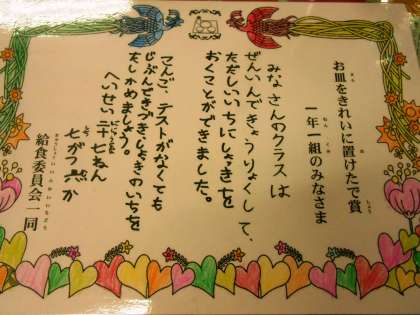 お皿をきれいに置けたで賞
一年一組のみなさま
みなさんのクラスは
ぜんいんできょうりょくして、
ただしいいちにしょっきを
おくことができました。
こんご、テストがなくても
じぶんできづきしょっきのいちを
たしかめましょう。
へいせい二十七ねん
七がつ
給食委員会一同